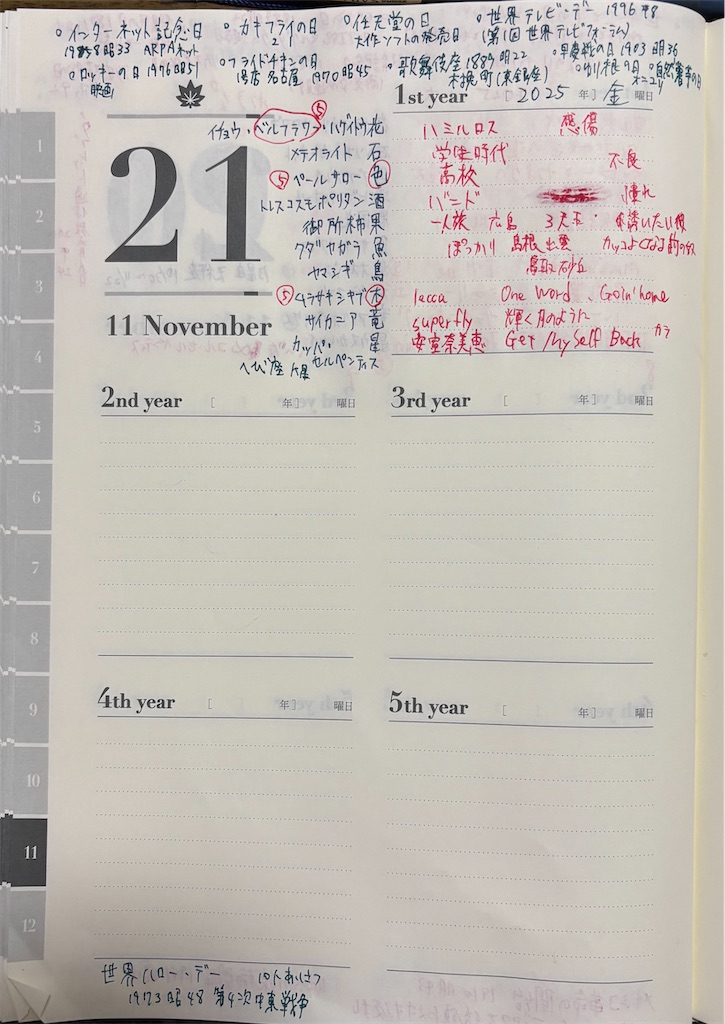 ○インターネット記念日 ○カキフライの日 ○任天堂の日 ○世界テレビ・デー 1996 平8
昭33 ARPAネット 21 大作ソフトの発売日 (第1回世界テレビフォーラム)
○ロッキーの日 1976 昭51 ○フライドチキンの日 ○歌舞伎座 1889 明22 ○早慶戦の日 1903 明36
映画 1号店 名古屋 1970 昭45 木挽町(東銀座)
イチョウ・ベルフラワー・ハゲイトウ 花 ⑤
メテオライト 石
⑤ ペールサロー 色
トレスコスモポリタン 酒
御所柿 果
クダヤガラ 魚
ヤマシギ 鳥
⑤ ムラサキシキブ 木
サイカニア 竜
カッパ・ 星
へび座 セルペンティス
21
11 November
1st year [2025 年] 金 曜日
ハミルロス 感傷
学生時代 不良
高校
バンド 憧れ
一人旅 広島
ぽっかり 島根 出雲
鳥取砂丘
lecca One Word、Goin' home
superfly 輝く月のように
安室奈美恵 Get Myself Back カラ
2nd year [ 年] 曜日
3rd year [ 年] 曜日
4th year [ 年] 曜日
5th year [ 年] 曜日
1
2
3
4
5
6
7
8
9
10
11
12
世界ハロー・デー 10人あいさつ
1973 昭48 第4次中東戦争